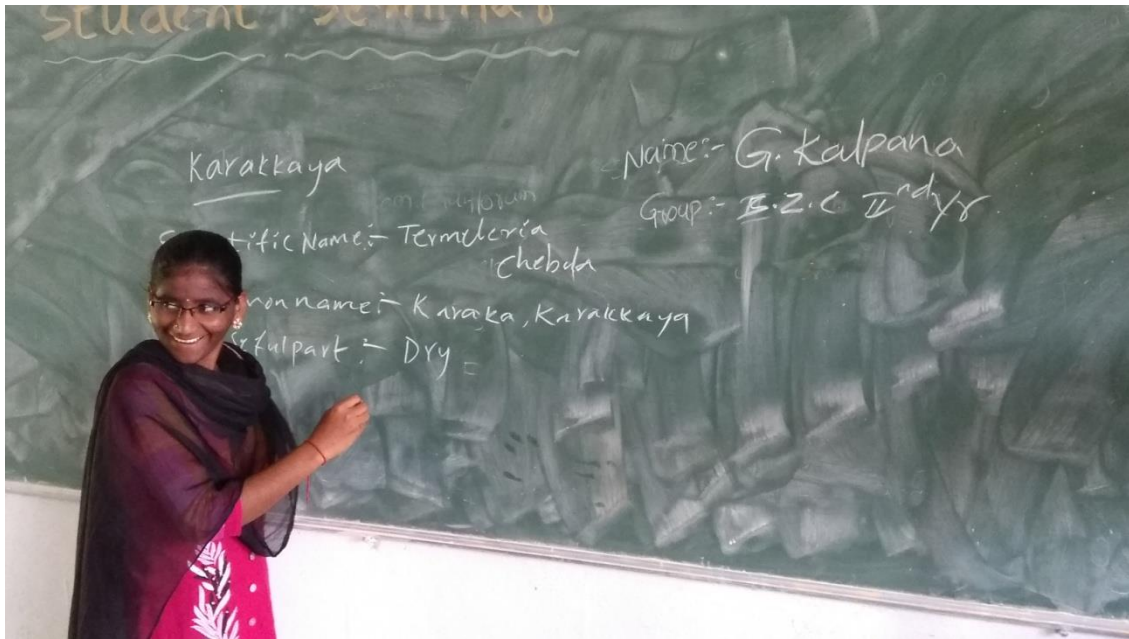 Student Seminar
Karakkaya
Name:- G. Kalpana
Group:- B.Z.C IInd yr
tific Name:- Termeleria
Chebda
mon name:- Karaka, Karakkaya
fulpart:- Dry